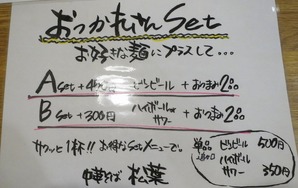 おつかれさんSet
お好きな麺にプラスして...
A set + 4 円 ビンビール + おつまみ2品
B set + 300円 ハイボールor サワー + おつまみ2品
サクッと1杯!! お得なSetメニューで。
中華そば 松葉
単品
ビンビール 500円
ハイボール
サワー 350円